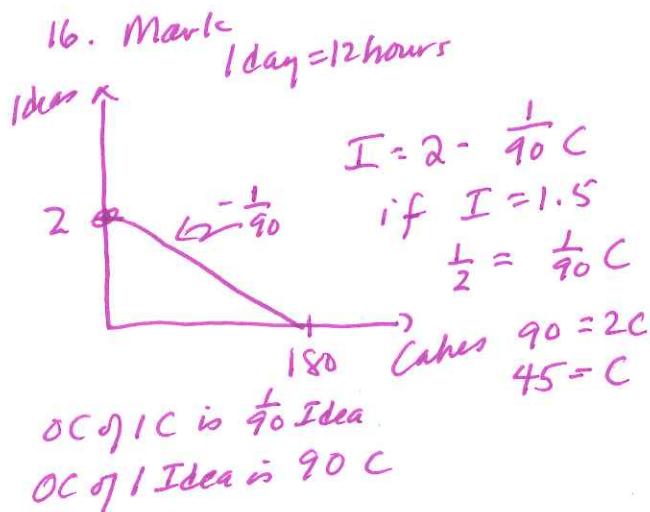 16. Mark
1 day = 12 hours
Ideas
2
-1/90
180
Cakes
I = 2 - 1/90 C
if I = 1.5
1/2 = 1/90 C
90 = 2C
45 = C
OC of 1C is 1/90 Idea
OC of 1 Idea is 90 C